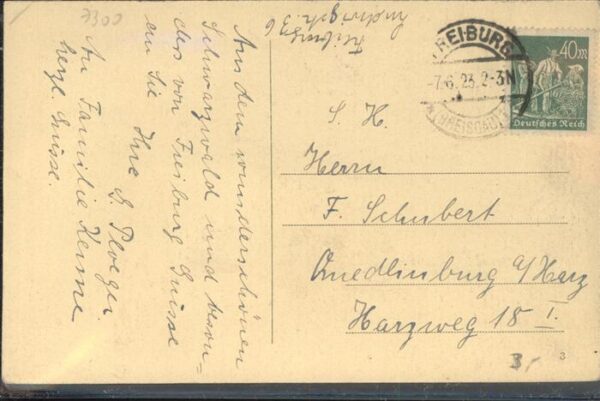 Freiburg
Ludwigstr. 36
Aus dem wunderschönen
Schwarzwald und beson-
ders von Freiburg Grüsse
an Sie
Ihre G. Ploeger.
An Familie Kenne
herzl. Grüsse.
FREIBURG
-7.6.23. 2-3N
(BREISGAU)
40m
Deutsches Reich
S. H.
Herrn
F. Schubert
Quedlinburg a/Harz
Harzweg 18 I.
3,-
3